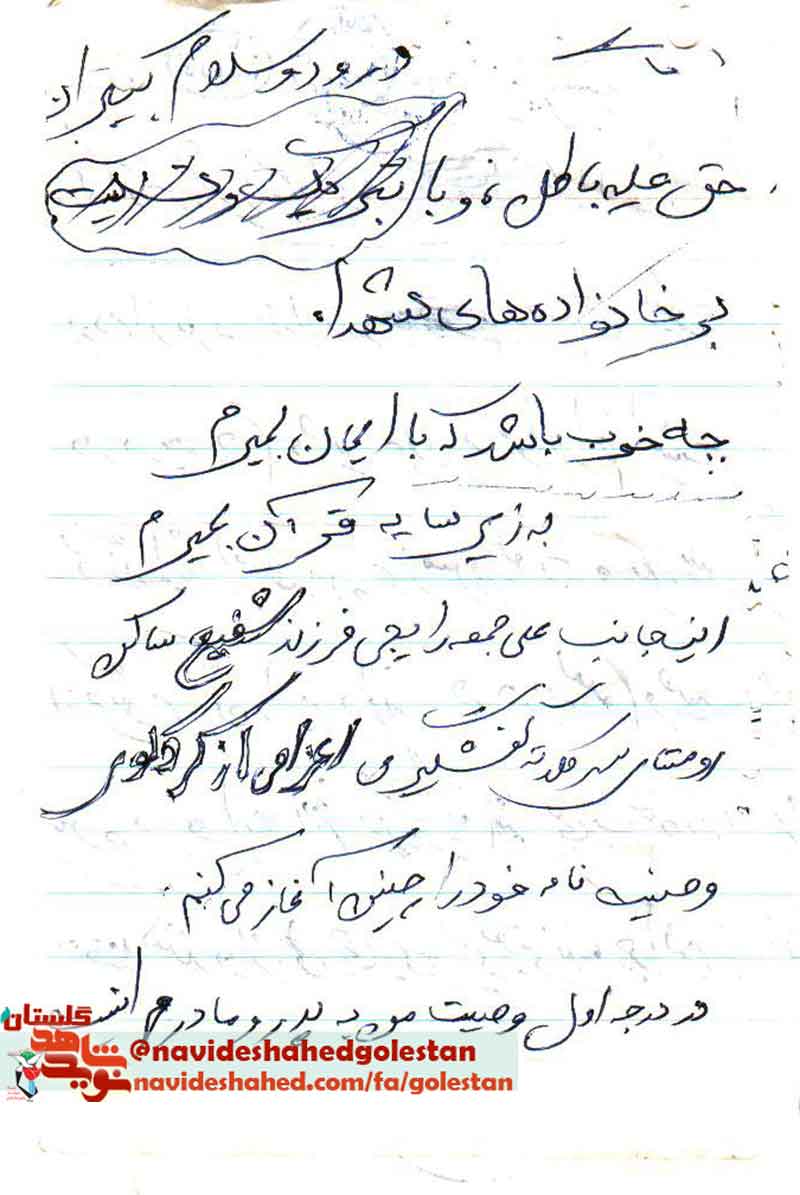 درود و سلام بیکران
حق علیه باطل ، و با
بر خانواده های شهدا.
چه خوب باشد که با ایمان بمیرم
به زیر سایه قرآن بمیرم
اینجانب علی جمعه رایجی فرزند شفیع ساکن
روستای سرکلاته کفشگیری اعزامی از کردکوی
وصیت نامه خود را چنین آغاز می کنم.
در درجه اول وصیت من به پدر و مادرم اینست
گلستان
نوید شاهد
@navideshahedgolestan
navideshahed.com/fa/golestan